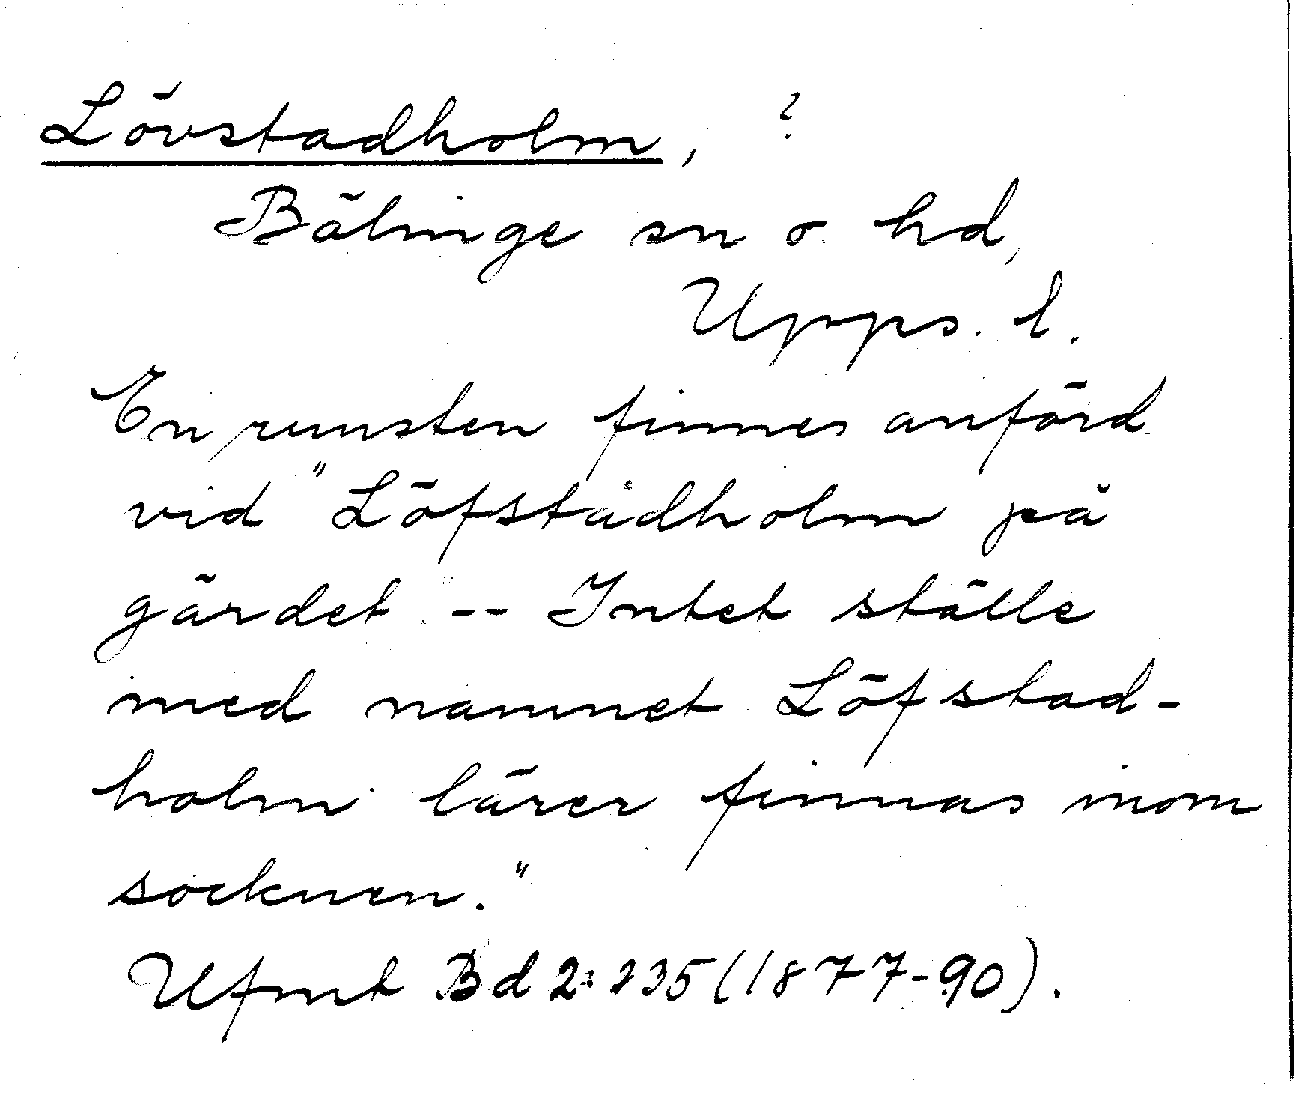 Lövstadholm, ?
Bälinge sn o hd,
Upps. l.
En runsten finnes anförd
vid "Löfstadholm på
gärdet -- Intet ställe
med namnet Löfstad-
holm lärer finnas inom
socknen."
Ufmt Bd 2: 235 (1877-90).